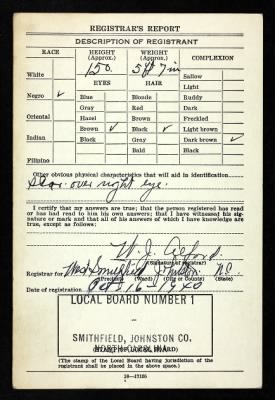 REGISTRAR'S REPORT
DESCRIPTION OF REGISTRANT
RACE HEIGHT (Approx.) WEIGHT (Approx.) COMPLEXION
White 150 5 ft 7 in Sallow
EYES HAIR Light
Negro ✓ Blue Blonde Ruddy
Gray Red Dark
Oriental Hazel Brown Freckled
Brown ✓ Black ✓ Light brown
Indian Black Gray Dark brown ✓
Bald Black
Filipino
Other obvious physical characteristics that will aid in identification
Scar over right eye.
I certify that my answers are true; that the person registered has read
or has had read to him his own answers; that I have witnessed his
signature or mark and that all of his answers of which I have knowledge
are true, except as follows:
(Signature of registrar)
Registrar for West Smithfield Johnston N.C.
(Precinct) (Ward) (City or County) (State)
Date of registration Oct 16 - 1940
LOCAL BOARD NUMBER 1
SMITHFIELD, JOHNSTON CO.
NORTH CAROLINA
(STAMP OF LOCAL BOARD)
(The stamp of the Local Board having jurisdiction of the
registrant shall be placed in the above space.)